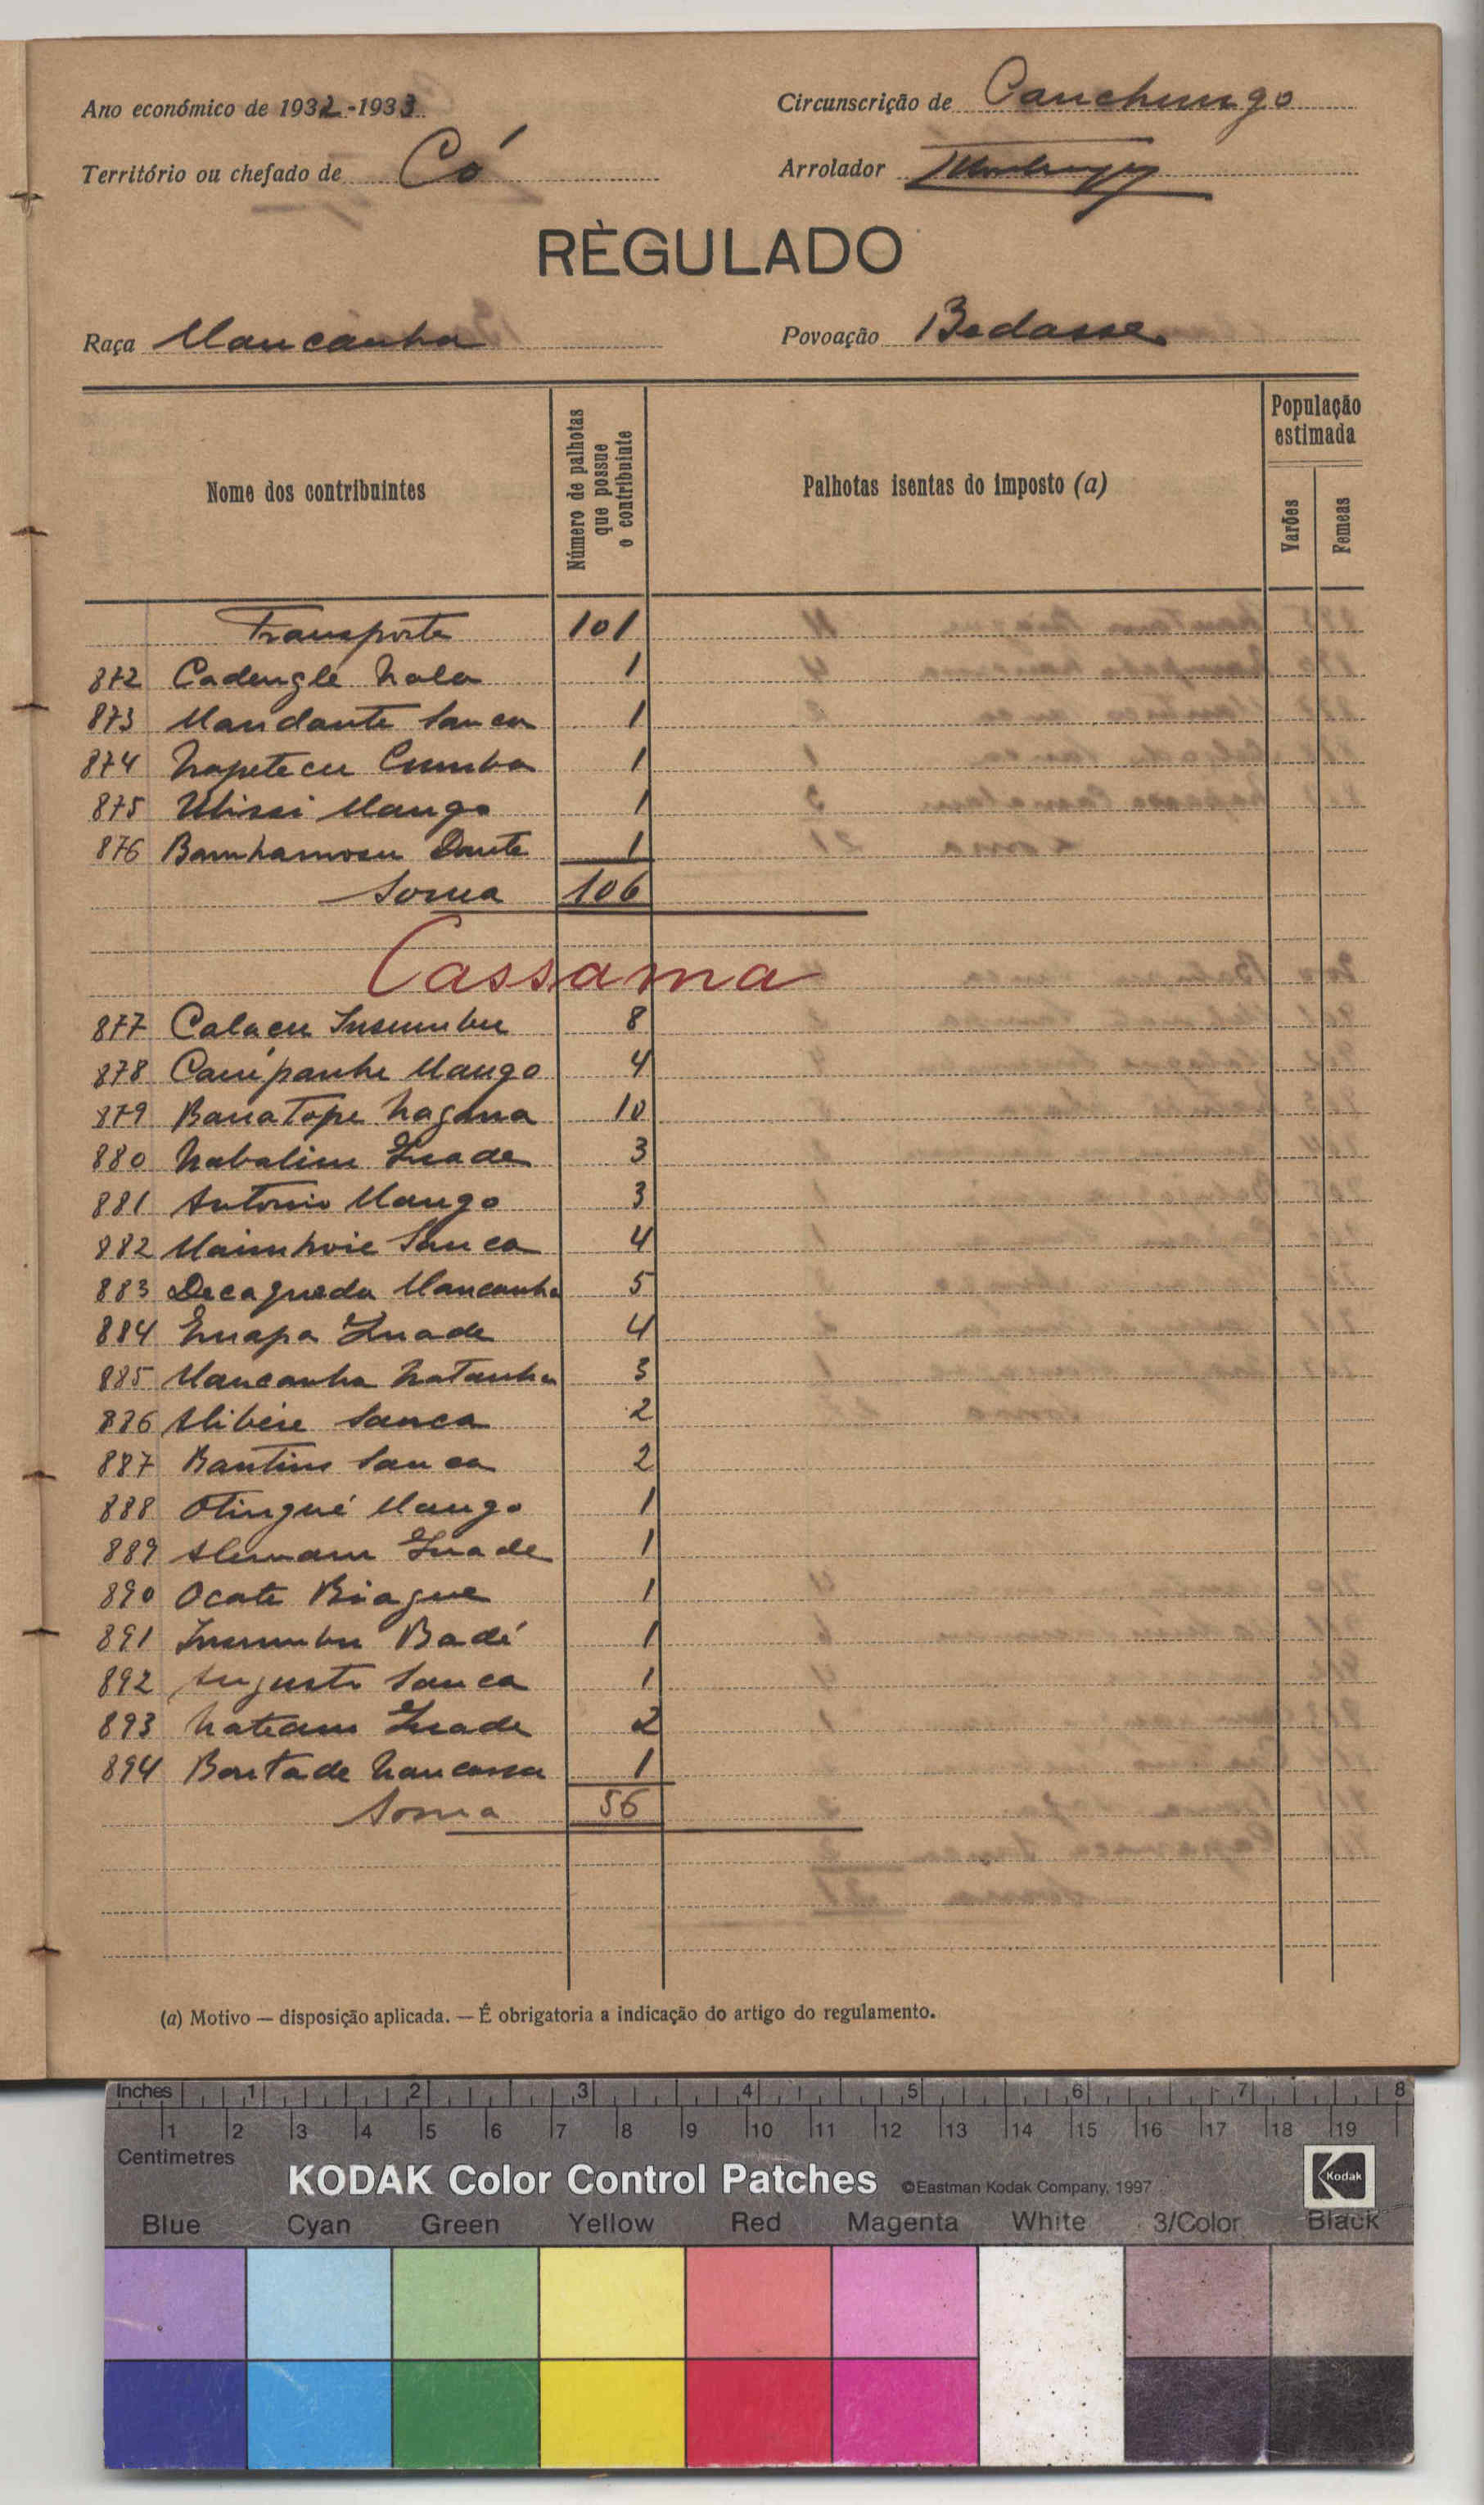 Ano económico de 1932-1933
Circunscrição de Canchungo
Território ou chefado de Có
Arrolador
RÈGULADO
Raça Mancanha
Povoação Bedasse
Nome dos contribuintes
Número de palhotas que possue o contribuinte
Palhotas isentas do imposto (a)
População estimada
Varões
Femeas
Transporte 101
872 Cadengle Nala 1
873 Mandante Sanca 1
874 Napetecu Cumba 1
875 Ulissi Mango 1
876 Bamhamosu Dante 1
Soma 106
Cassama
877 Calacu Insumbu 8
878 Campanhe Mango 4
879 Banatope Nagana 10
880 Nabalim Inade 3
881 Antonio Mango 3
882 Maimhoie Sanca 4
883 Decagueda Mancanha 5
884 Inapa Inade 4
885 Mancanha Natanha 3
886 Alibére Sanca 2
887 Bantim Sanca 2
888 Otingué Mango 1
889 Inade 1
890 Ocate Biague 1
891 Insumbu Badé 1
892 Augusto Sanca 1
893 Nateam Inade 2
894 Bontade Nancassa 1
Soma 56
(a) Motivo — disposição aplicada. — É obrigatoria a indicação do artigo do regulamento.
Inches 1 2 3 4 5 6 7 8
1 2 3 4 5 6 7 8 9 10 11 12 13 14 15 16 17 18 19
Centimetres
KODAK Color Control Patches ©Eastman Kodak Company, 1997 Kodak
Blue Cyan Green Yellow Red Magenta White 3/Color Black